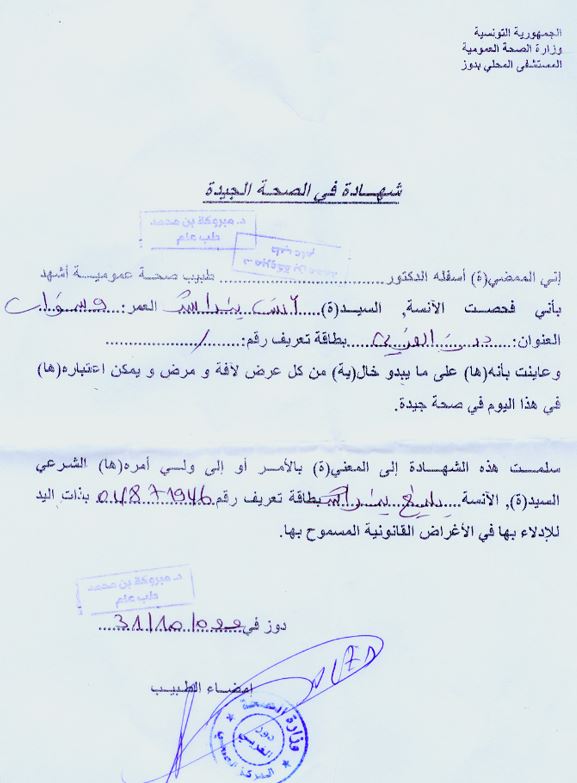 الجمهورية التونسية
وزارة الصحة العمومية
المستشفى المحلي بدوز
شهادة في الصحة الجيدة
د. مبروكة بن محمد
طب عام
د. مبروكة بن محمد
طب عام
إني الممضي(ة) أسفله الدكتور.............................. طبيب صحة عمومية أشهد
بأني فحصت الآنسة, السيد(ة)........ أنس ........ العمر: ........ سنوات
العنوان: ........ دوز الغربي ........ بطاقة تعريف رقم: ......../........
وعاينت بأنه(ها) على ما يبدو خال(ية) من كل عرض لآفة و مرض و يمكن اعتباره(ها)
في هذا اليوم في صحة جيدة.
سلمت هذه الشهادة إلى المعني(ة) بالأمر أو إلى ولي أمره(ها) الشرعي
السيد(ة), الآنسة ........ بطاقة تعريف رقم 04871946 بذات اليد
للإدلاء بها في الأغراض القانونية المسموح بها.
د. مبروكة بن محمد
طب عام
دوز في 31/10/
إمضاء الطبيب
وزارة الصحة
دوز
الغربي